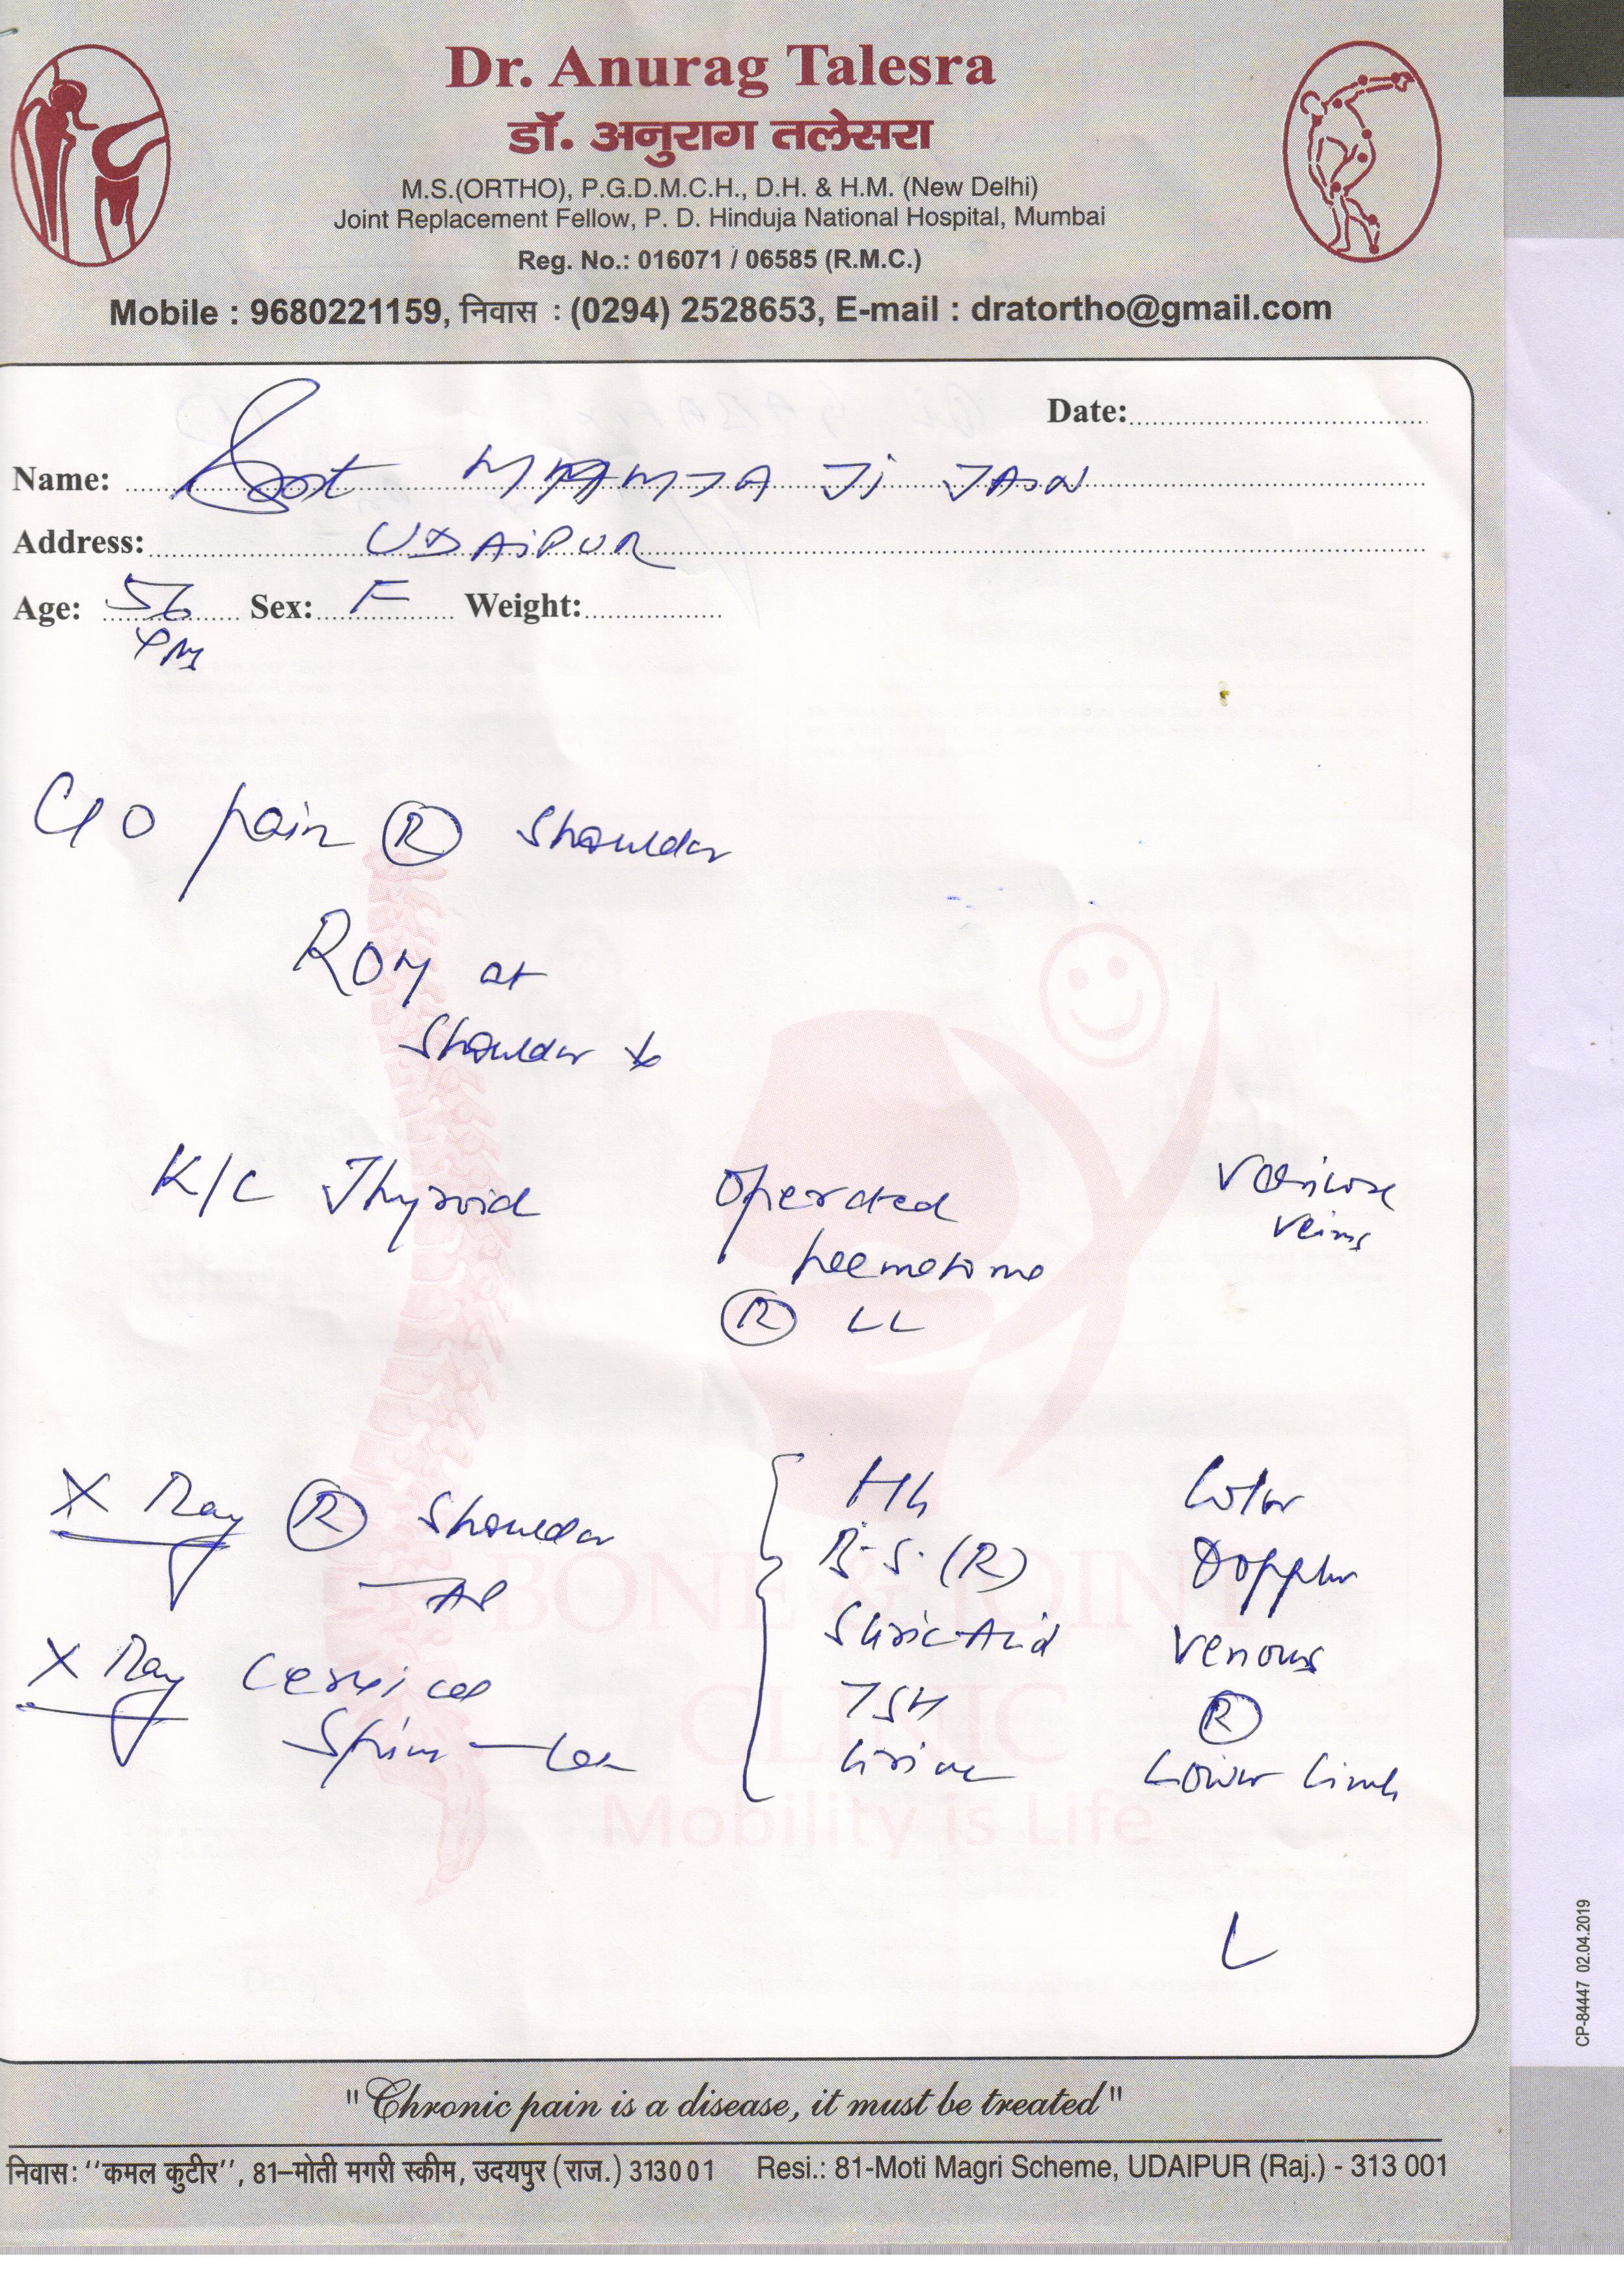 Dr. Anurag Talesra
डॉ. अनुराग तलेसरा
M.S.(ORTHO), P.G.D.M.C.H., D.H. & H.M. (New Delhi)
Joint Replacement Fellow, P. D. Hinduja National Hospital, Mumbai
Reg. No.: 016071 / 06585 (R.M.C.)
Mobile : 9680221159, निवास : (0294) 2528653, E-mail : dratortho@gmail.com
Date:
Name: Smt MAMTA Ji JAIN
Address: UDAIPUR
Age: 56 Sex: F Weight:
yrs
C/O pain R Shoulder
ROM at
Shoulder
K/C Thyroid
Operated
heematoma
R LL
Varicose
veins
X Ray R Shoulder
AP
X Ray Cervical
Spine
Hb
B.S. (R)
S Uric Acid
TSH
Urine
Color
Doppler
Venous
R
Lower Limb
BONE & JOINT
CLINIC
Mobility is Life
CP-84447 02.04.2019
"Chronic pain is a disease, it must be treated"
निवास: ''कमल कुटीर'', 81–मोती मगरी स्कीम, उदयपुर (राज.) 313001 Resi.: 81-Moti Magri Scheme, UDAIPUR (Raj.) - 313 001